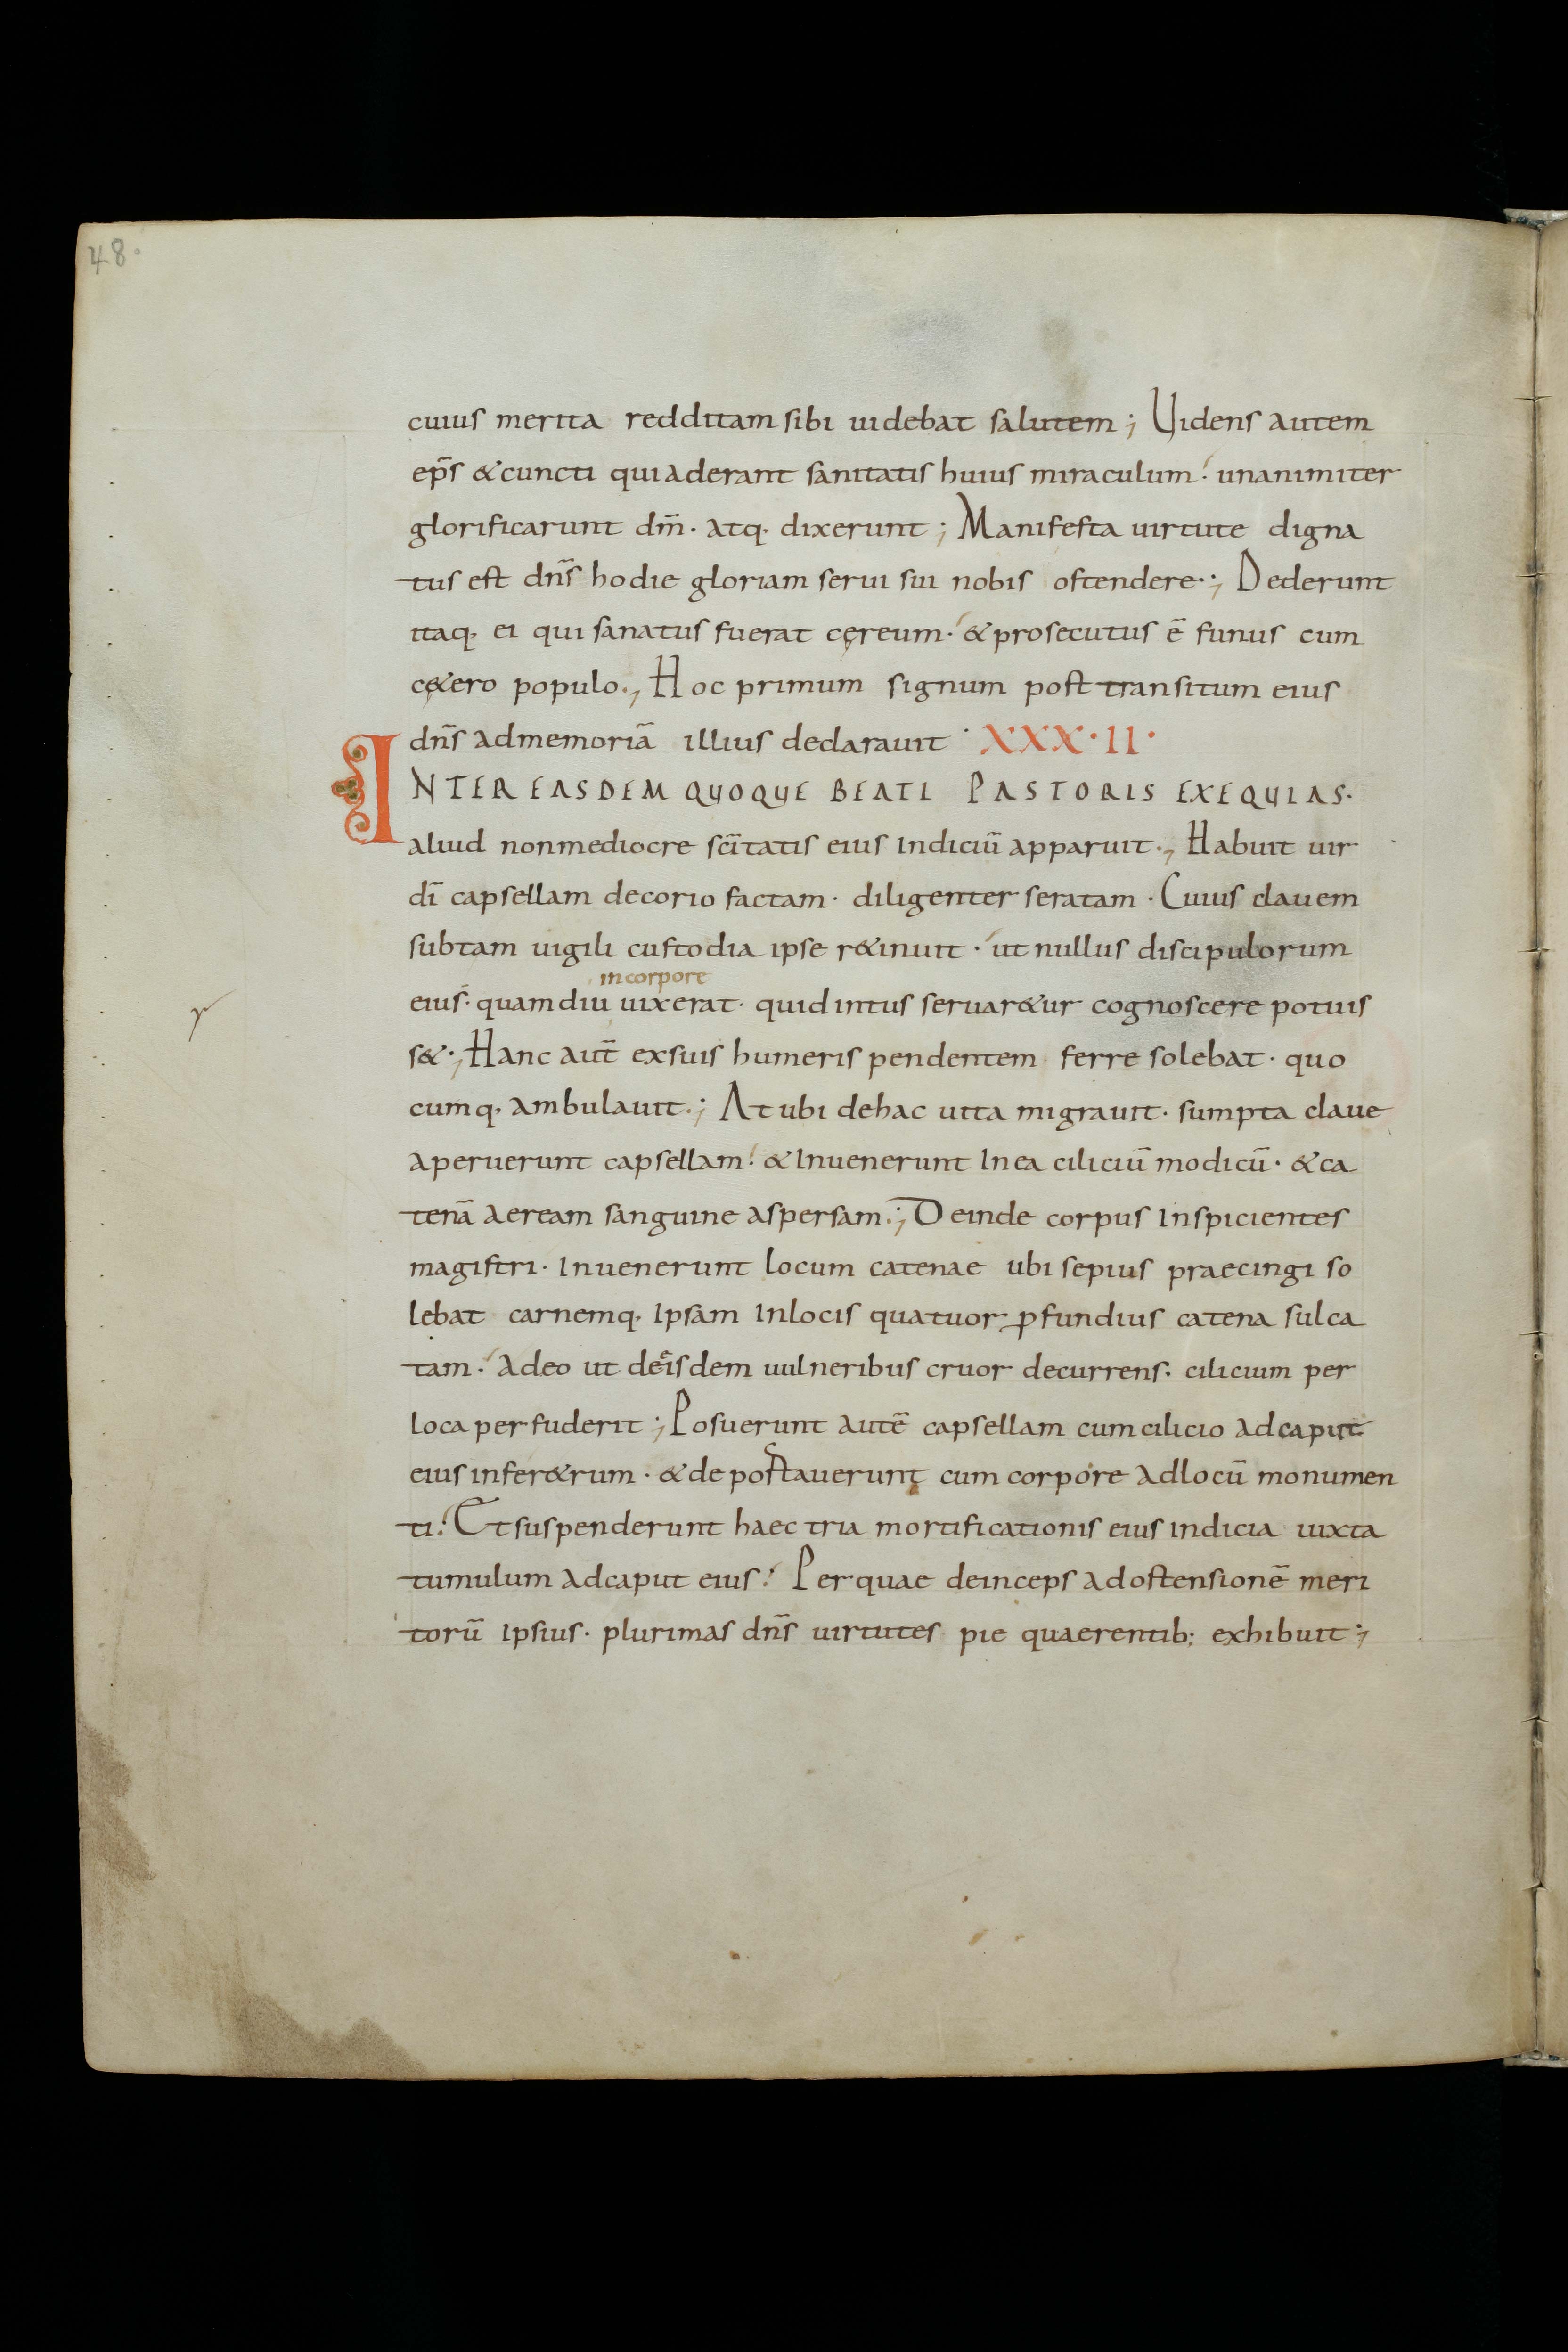 48.
cuius merita redditam sibi uidebat salutem; Uidens autem
ep̄s & cuncti qui aderant sanitatis huius miraculum· unanimiter
glorificarunt dm̄· atq· dixerunt; Manifesta uirtute digna
tus est dn̄s hodie gloriam serui sui nobis ostendere·; Dederunt
itaq· ei qui sanatus fuerat cęreum· & prosecutus ē funus cum
cę&ero populo·, Hoc primum signum post transitum eius
dn̄s ad memoriā illius declarauit · XXX·II·
INTER EASDEM QUOQUE BEATI PASTORIS EXEQUIAS·
aliud non mediocre sc̄itatis eius indiciū apparuit·, Habuit uir
dī capsellam de corio factam· diligenter seratam· Cuius clauem
sub tam uigili custodia ipse r&inuit· ut nullus discipulorum
in corpore
eius· quamdiu uixerat· quid intus seruar&ur cognoscere potuis
s&·, Hanc aut̄ ex suis humeris pendentem ferre solebat· quo
cumq· ambulauit·; At ubi de hac uita migrauit· sumpta claue
aperuerunt capsellam· & inuenerunt in ea ciliciū modicū· & ca
tenā aeream sanguine aspersam·; Deinde corpus inspicientes
magistri· inuenerunt locum catenae ubi sepius praecingi so
lebat carnemq· ipsam in locis quatuor ꝓfundius catena sulca
tam· adeo ut de eisdem uulneribus cruor decurrens· cilicium per
loca perfuderit; Posuerunt autē capsellam cum cilicio ad caput
eius infer&rum· & depostauerunt cum corpore ad locū monumen
ti· Et suspenderunt haec tria mortificationis eius indicia iuxta
tumulum ad caput eius· Per quae deinceps ad ostensionē meri
torū ipsius· plurimas dn̄s uirtutes pie quaerentib; exhibuit;